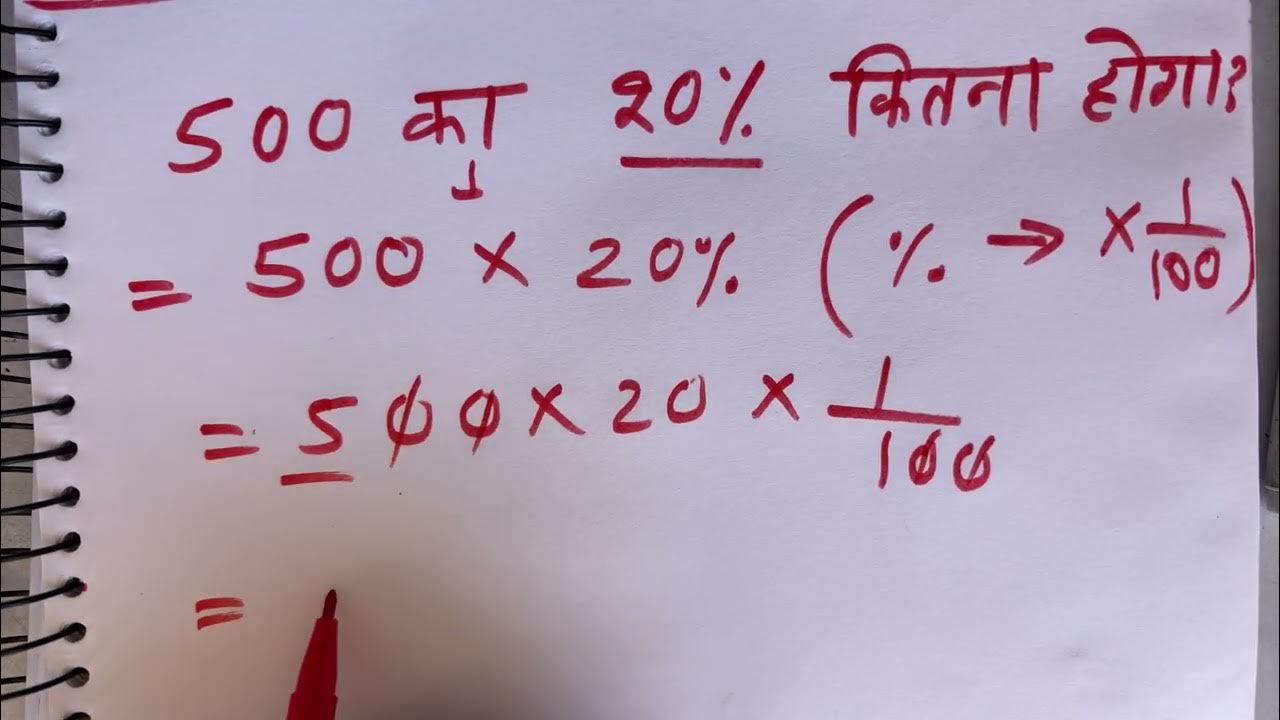 500 का 20% कितना होगा?
= 500 × 20% (% → × 1/100)
= 500 × 20 × 1/100
=